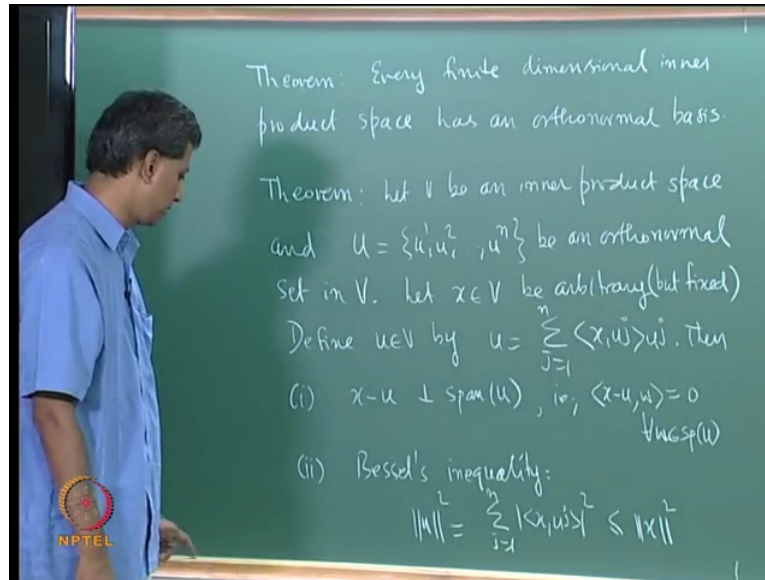 Theorem: Every finite dimensional inner
product space has an orthonormal basis.
Theorem: Let V be an inner product space
and U = {u¹, u², , uⁿ} be an orthonormal
set in V. Let x ∈ V be arbitrary (but fixed)
Define u ∈ V by u = ∑_{j=1}^{n} <x, uʲ> uʲ. Then
(i) x-u ⊥ span(U), ie; <x-u, w> = 0
∀ w ∈ sp(U)
(ii) Bessel's inequality:
||u||² = ∑_{j=1}^{n} |<x, uʲ>|² ≤ ||x||²
NPTEL